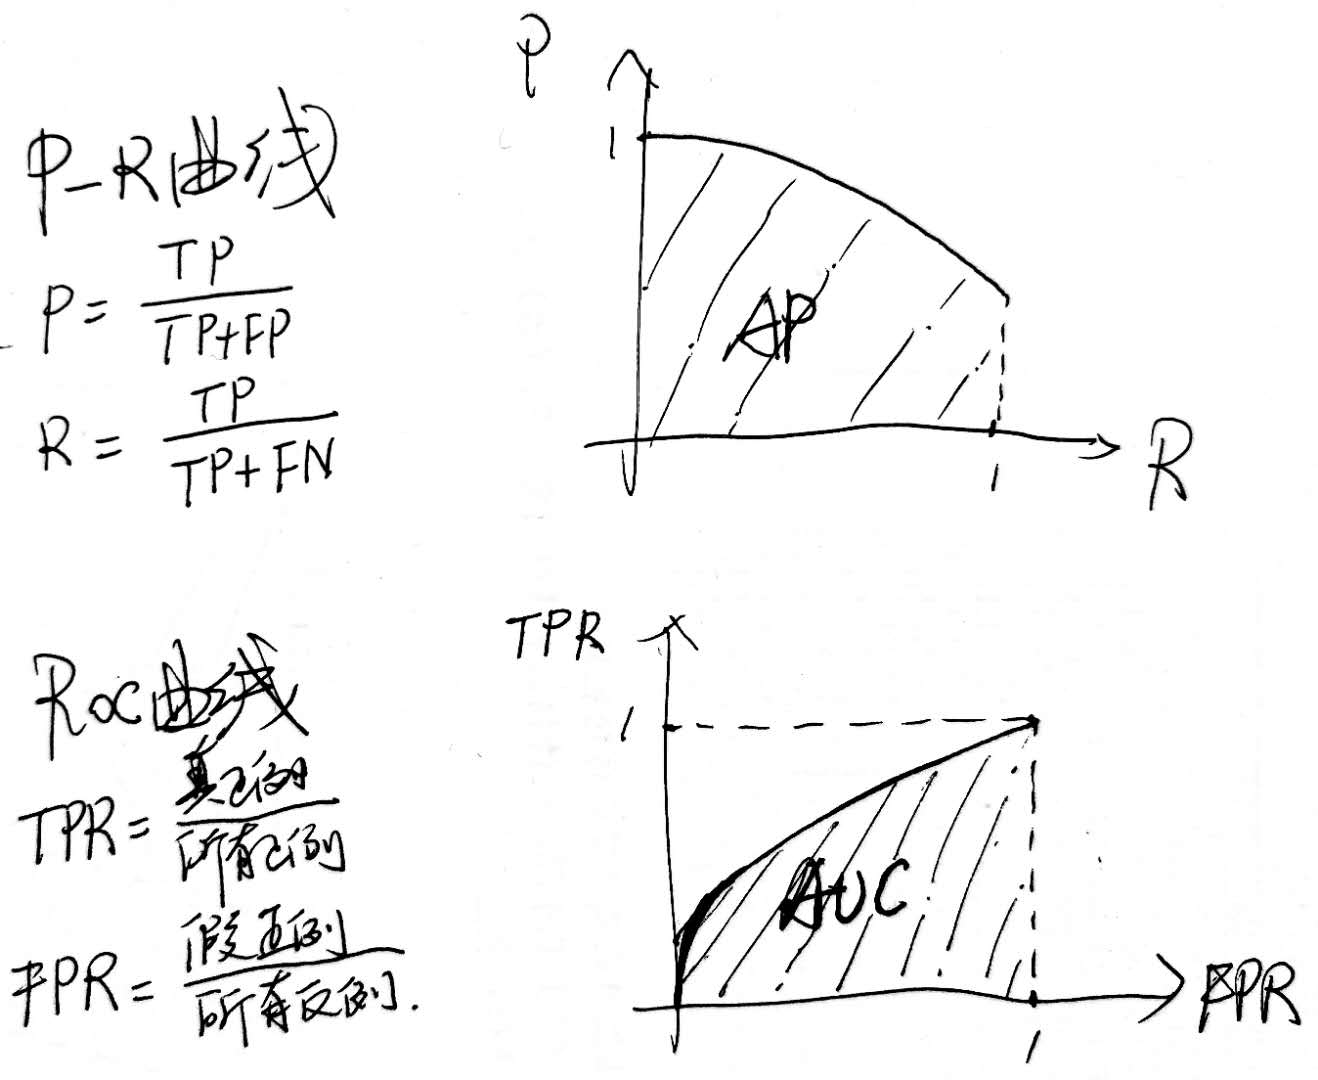 P-R曲线
P = TP / TP+FP
R = TP / TP+FN
P
1
AP
1
R
ROC曲线
TPR = 真正例 / 所有正例
FPR = 假正例 / 所有反例.
TPR
1
AUC
1
FPR